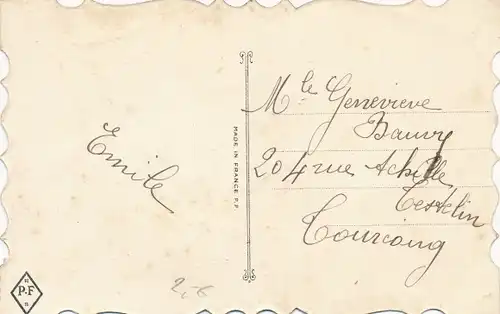 Emile
MADE IN FRANCE P.F
Mle Genevieve
Bauvy
204 rue Achille
Testelin
Tourcoing
P-F
2,-€